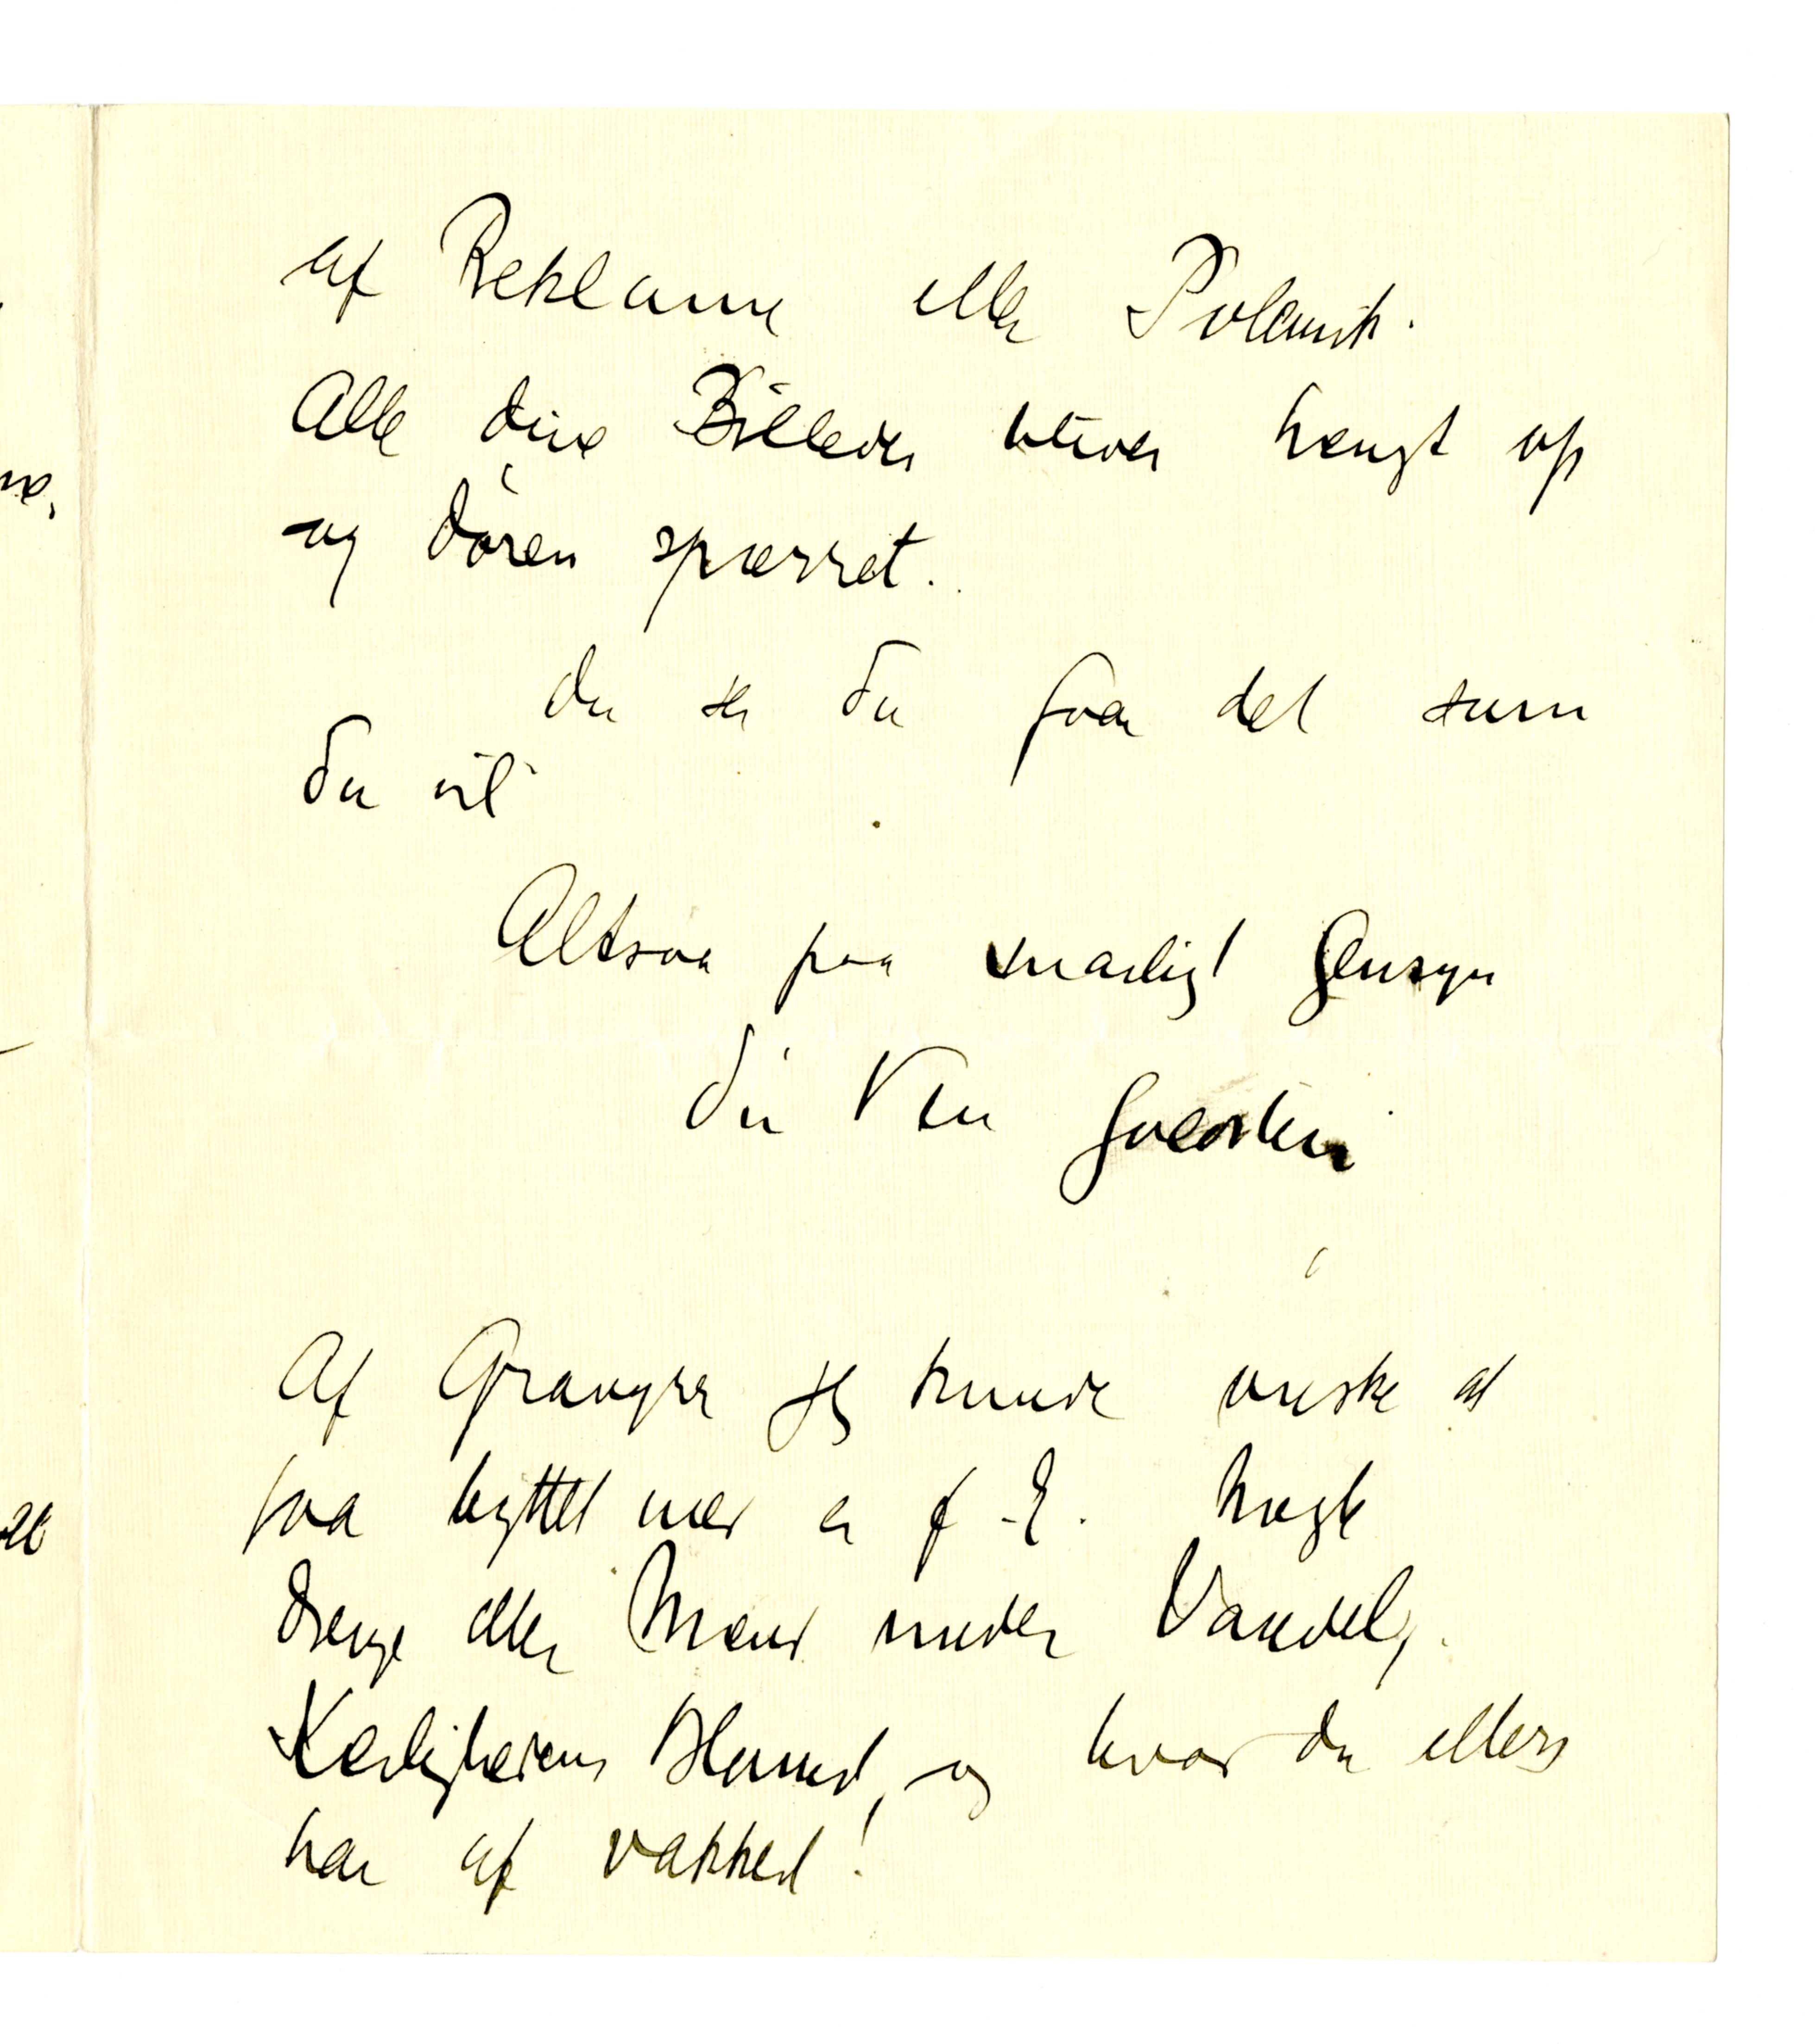 af Reklame eller Polemik.
Alle dine Billeder bliver hengt op
og Døren spærret.
Du ser du faar det som
du vil
Altsaa paa snarligt Gensyn
din Ven
Af Gravyrer jeg kunde ønske at
faa byttet med er f-E. Nogle
Drenge eller Mænd under
Kærlighedens Blomst, og hvad du ellers
har af vakkert!